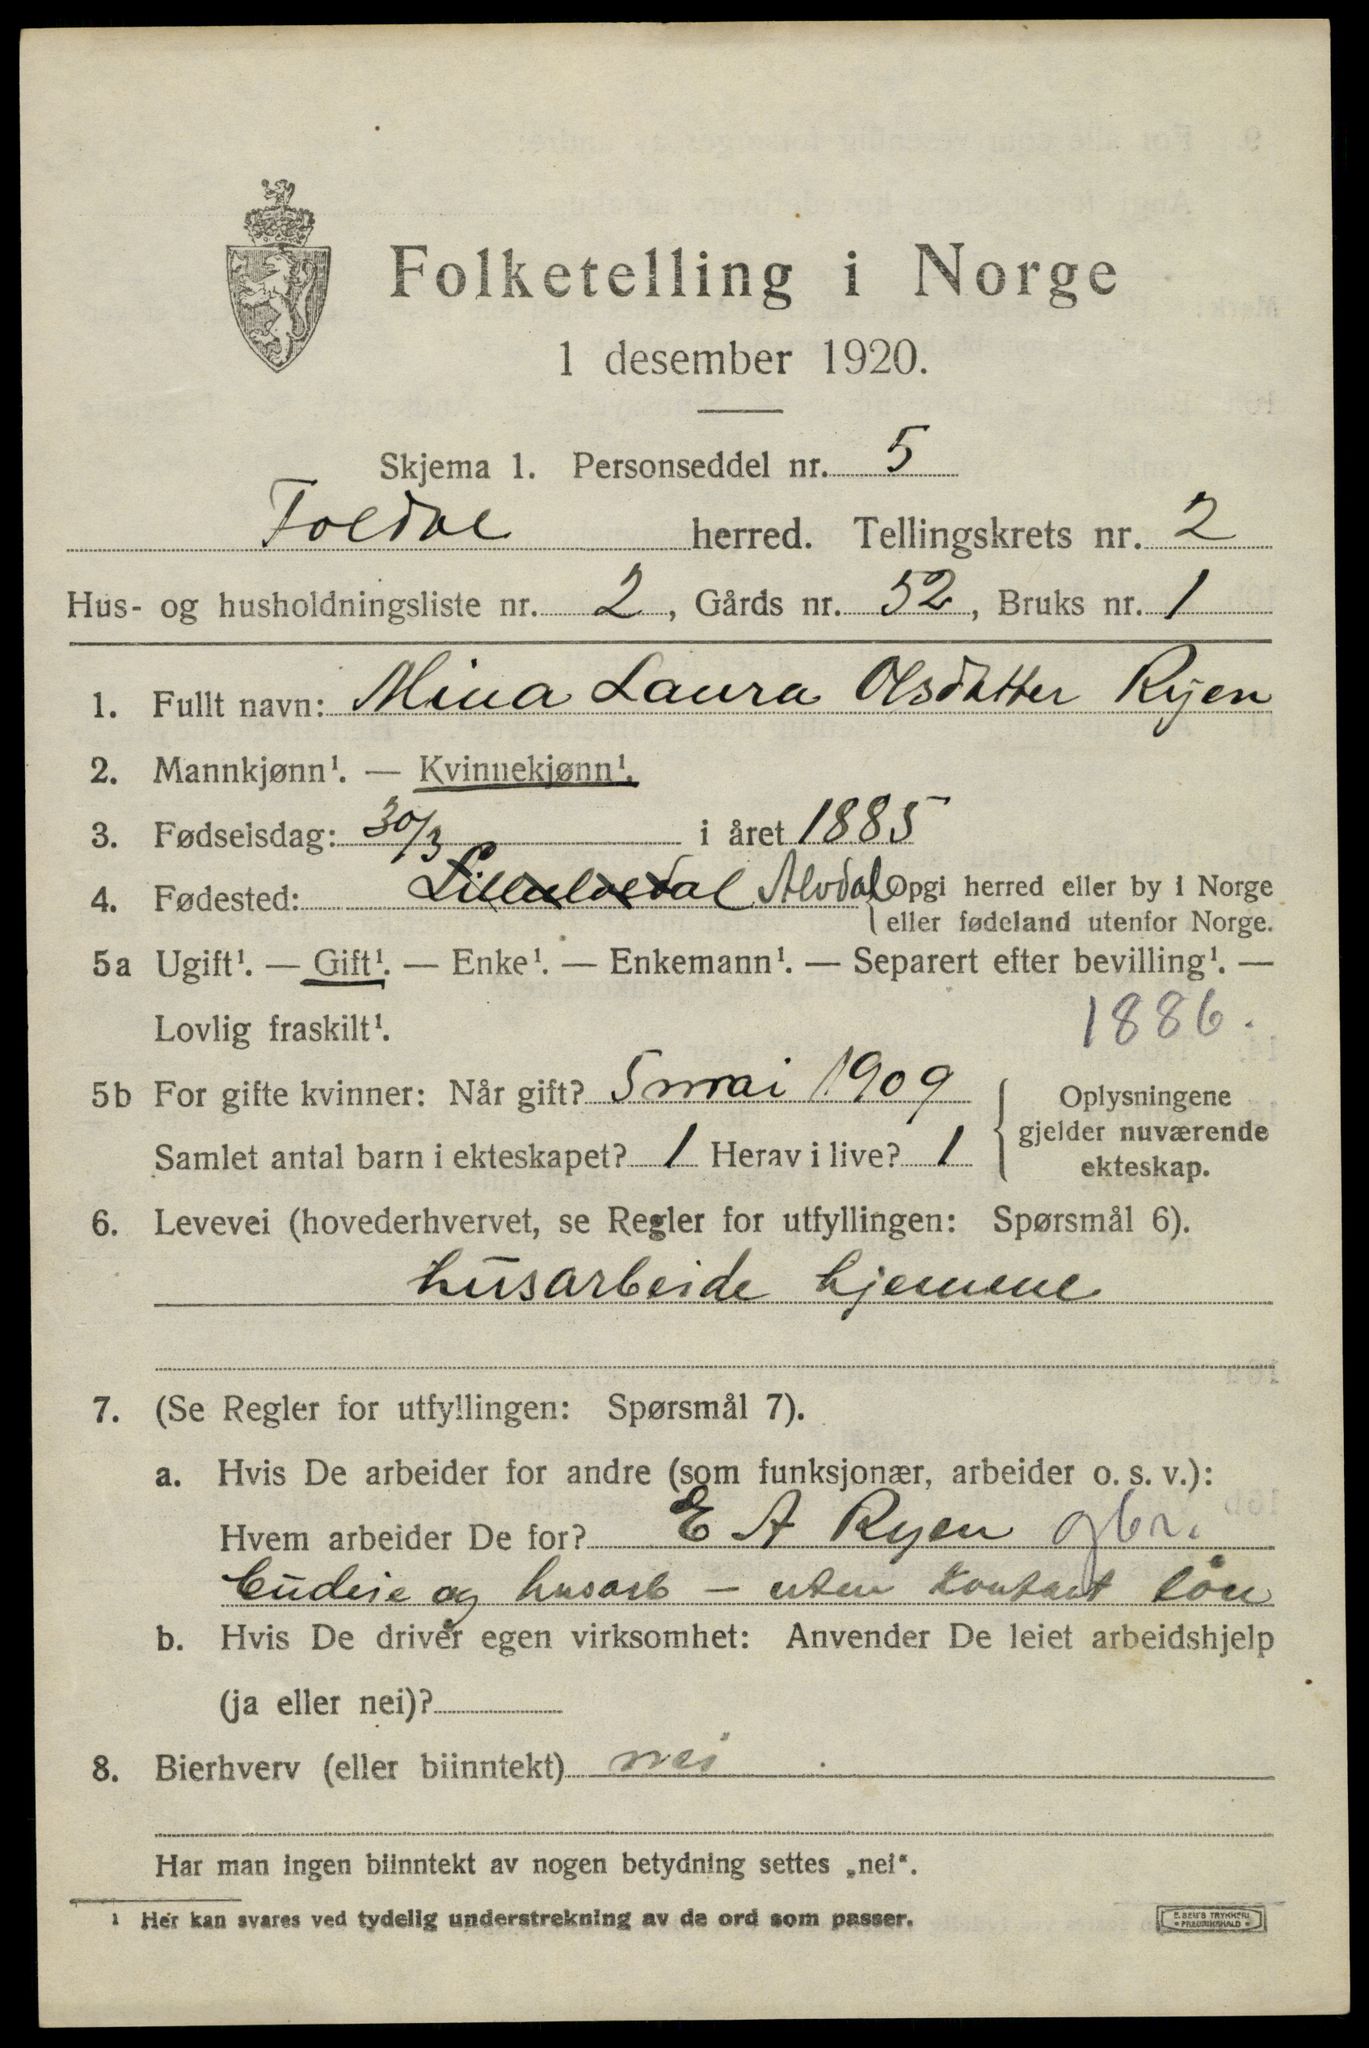 Folketelling i Norge
1 desember 1920.
Skjema 1. Personseddel nr. 5
Foldal herred. Tellingskrets nr. 2
Hus- og husholdningsliste nr. 2, Gårds nr. 52, Bruks nr. 1
1. Fullt navn: Mina Laura Olsdatter Ryen
2. Mannkjønn¹. — Kvinnekjønn¹.
3. Fødselsdag: 30/3 i året 1885
4. Fødested: Lilleelvedal Alvdal {Opgi herred eller by i Norge
eller fødeland utenfor Norge.
5a Ugift¹. — Gift¹. — Enke¹. — Enkemann¹. — Separert efter bevilling¹. —
Lovlig fraskilt¹. 1886.
5b For gifte kvinner: Når gift? 5 mai 1909
Samlet antal barn i ekteskapet? 1 Herav i live? 1
Oplysningene
gjelder nuværende
ekteskap.
6. Levevei (hovederhvervet, se Regler for utfyllingen: Spørsmål 6).
husarbeide hjemme
7. (Se Regler for utfyllingen: Spørsmål 7).
a. Hvis De arbeider for andre (som funksjonær, arbeider o. s. v.):
Hvem arbeider De for? E A Ryen gbr.
budeie og husarb — uten kontant løn
b. Hvis De driver egen virksomhet: Anvender De leiet arbeidshjelp
(ja eller nei)?
8. Bierhverv (eller biinntekt) nei
Har man ingen biinntekt av nogen betydning settes „nei“.
¹ Her kan svares ved tydelig understrekning av de ord som passer.
E. SEM'S TRYKKERI
FREDRIKSHALD